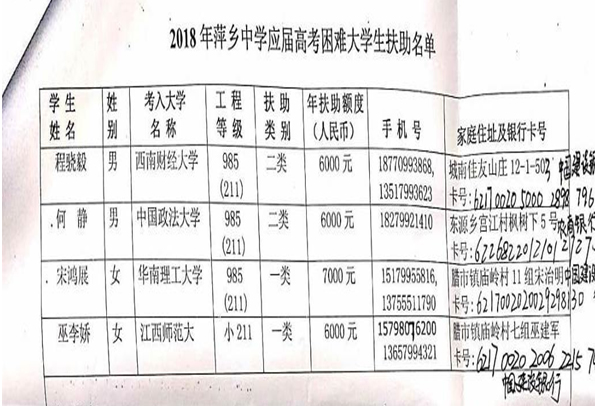 2018 年萍乡中学应届高考困难大学生扶助名单
学生姓名 性别 考入大学名称 工程等级 扶助类别 年扶助额度(人民币) 手机号 家庭住址及银行卡号
程骁毅 男 西南财经大学 985 二类 6000 元 18770993868, 城南佳友山庄 12-1-503 中国建设
(211) 13517993623 卡号:6217 0020 5000 2898 796
.何 静 男 中国政法大学 985 二类 6000 元 18279921410 东源乡宫江村枫树下 5 号 农商银行
(211) 卡号:
.宋鸿展 女 华南理工大学 985 一类 7000 元 15179955816, 腊市镇庙岭村 11 组宋治明 中国建设
(211) 13755511790 卡号:
巫李娇 女 江西师范大 小 211 一类 6000 元 15798076200 腊市镇庙岭村七组巫建军
13657994321 卡号:6217 0020 2006 2215
中国建设银行